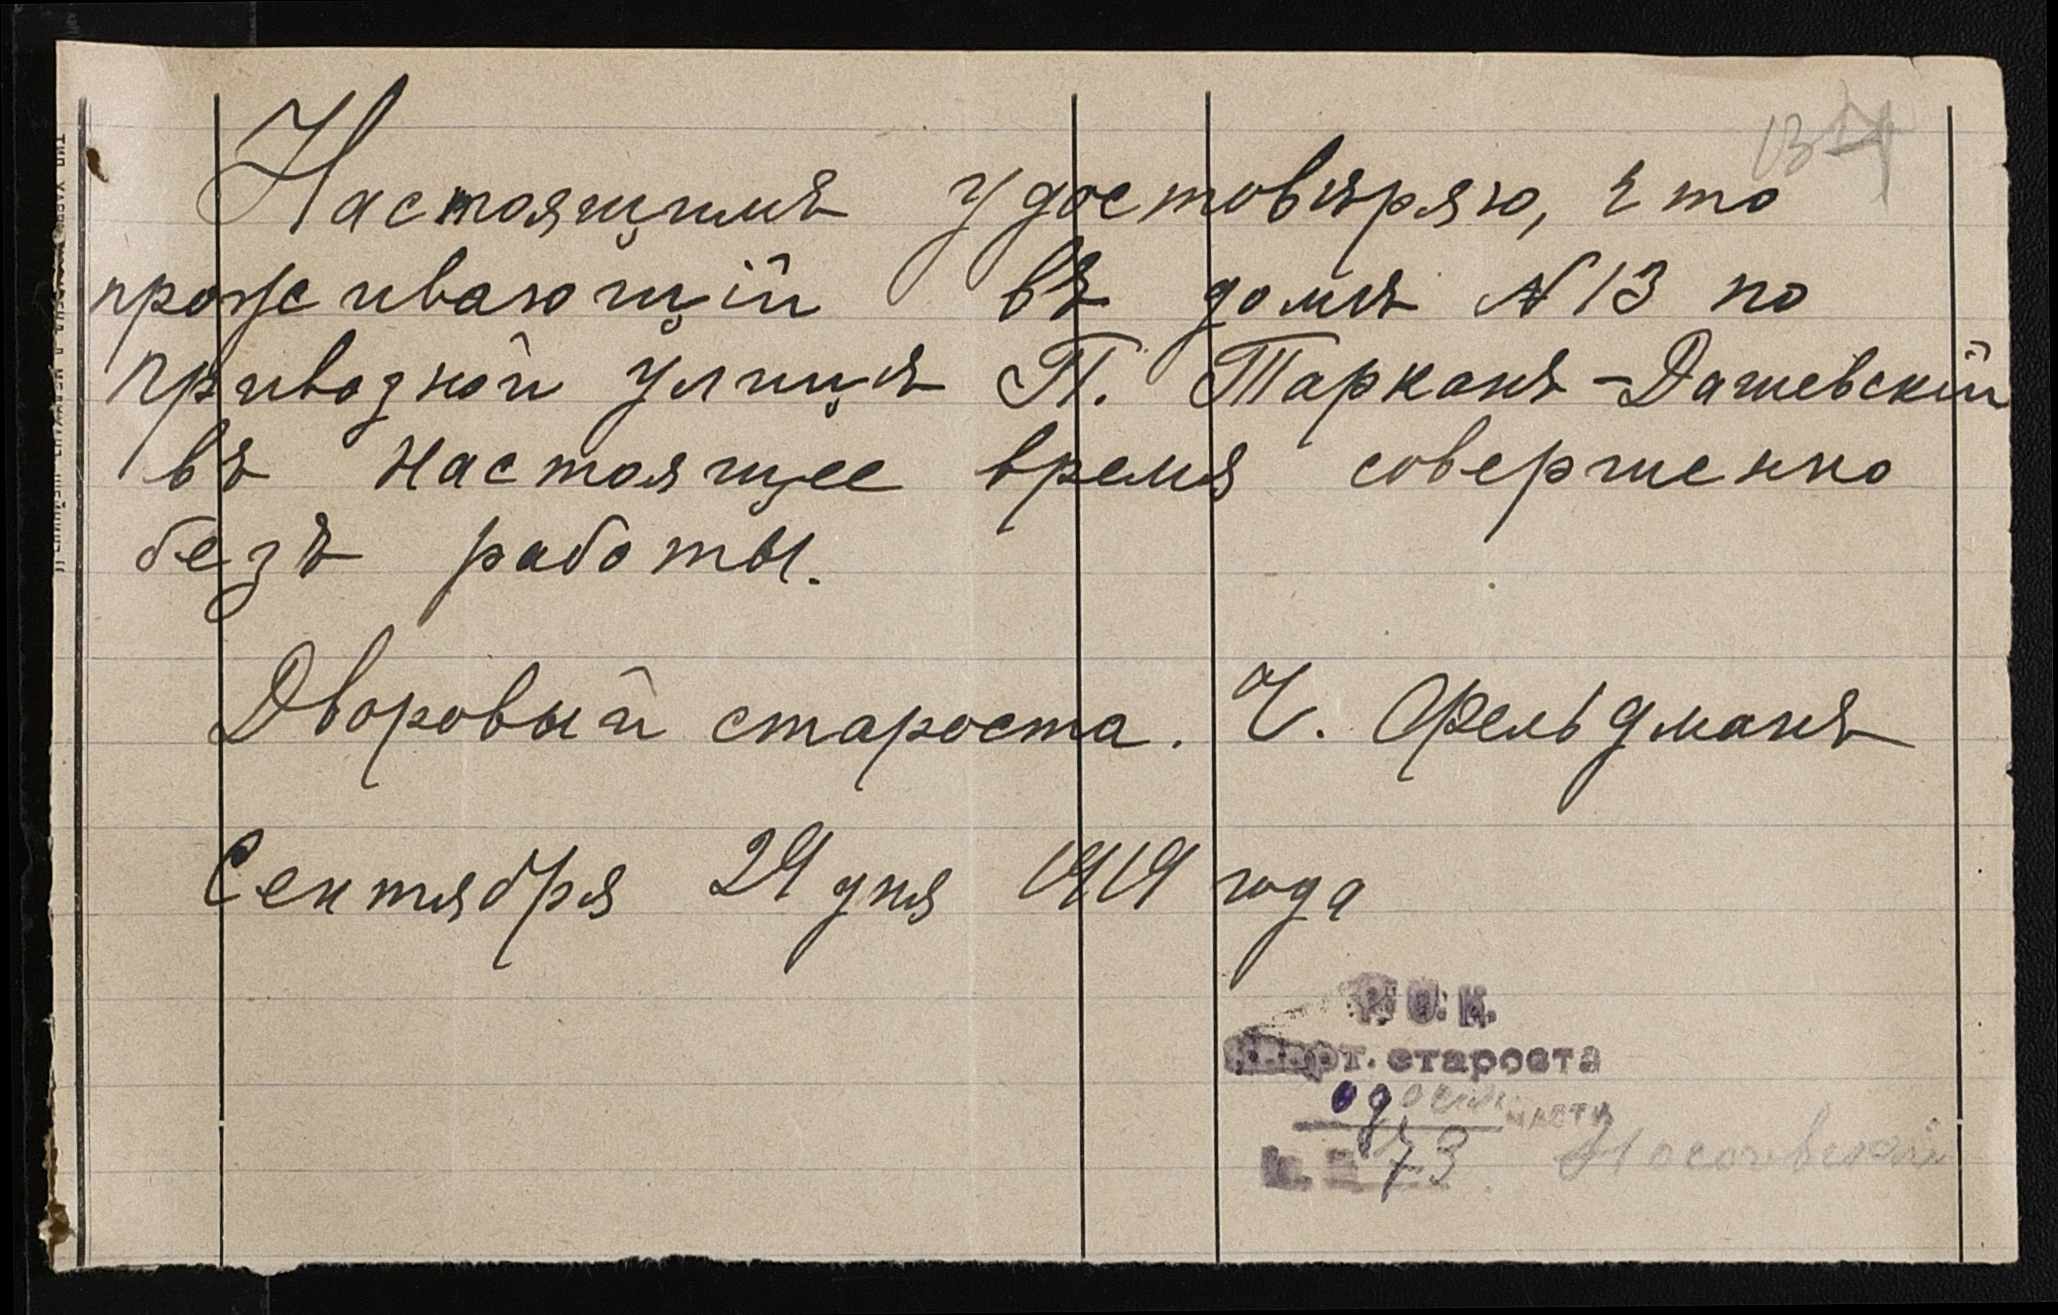 134
Настоящимъ удостовѣряю, что
проживающій въ домѣ N 13 по
приводной улицѣ П. Тарканъ-Дашевскій
въ настоящее время совершенно
безъ работы.
Дворовый староста. Ч. Фельдманъ
Сентября 29 дня 1919 года
Р. О. К.
Кварт. староста
части
73